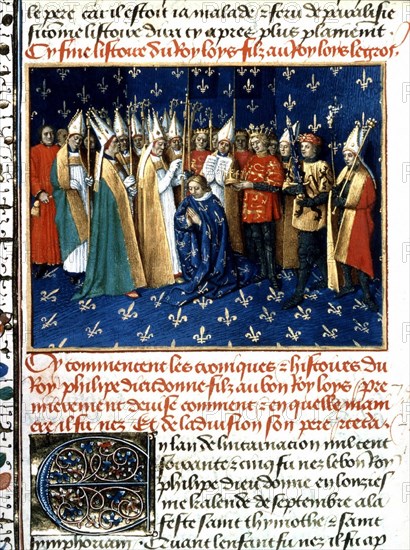 le pere car il estoit ia malade & feru de paralisie
si come listoire dira cy apres plus plainement
Cy fine listoire du Roy loys filz au Roy loys le gros.
Cy commencent les croniques & histoires du
Roy philipe dieudonne filz au bon Roy loys pre
mierement devise comment en quelle mani
ere il fu nez Et de la division son pere
En lan de lincarnation mil cent
soixante & cinq fu nez le bon Roy
philipe dieudonne en lonzies
me kalende de septembre a la
feste saint thymothe & saint
symphorian Quant lenfant fu nez il fu ap